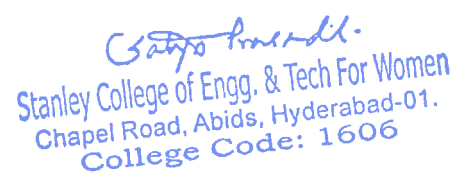 Stanley College of Engg. & Tech For Women
Chapel Road, Abids, Hyderabad-01.
College Code: 1606